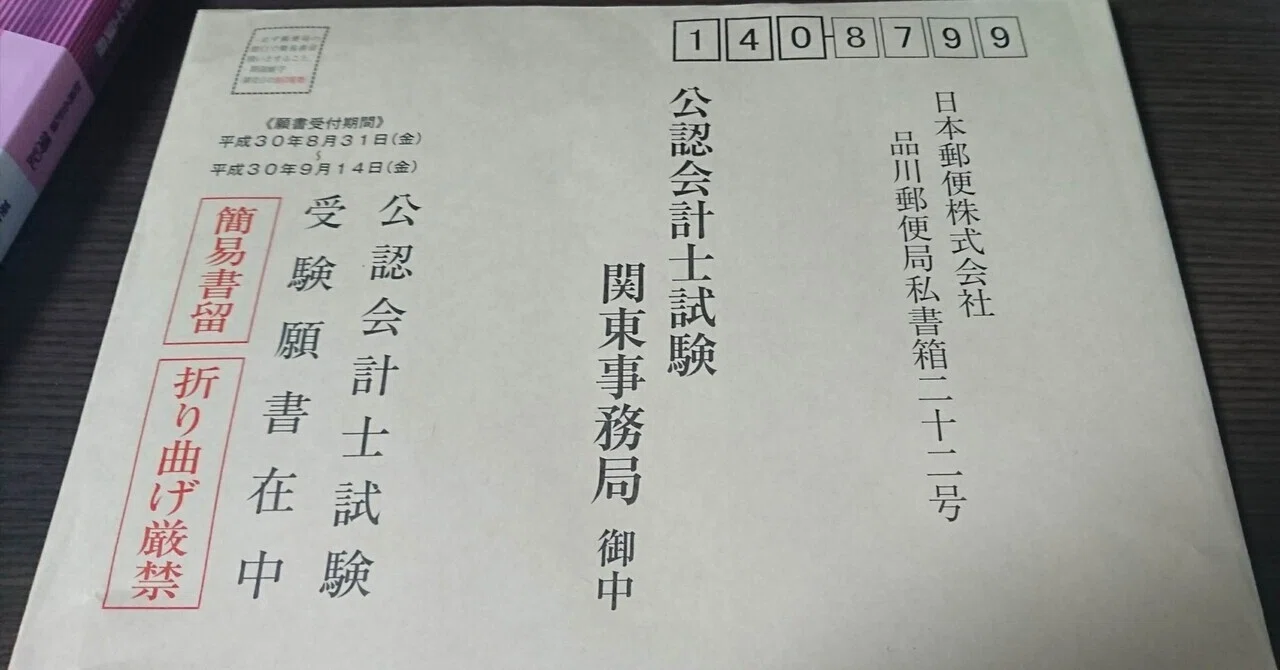 140-8799
日本郵便株式会社
品川郵便局私書箱二十二号
公認会計士試験
関東事務局 御中
《願書受付期間》
平成30年8月31日(金)
~
平成30年9月14日(金)
公認会計士試験
受験願書在中
簡易書留
折り曲げ厳禁